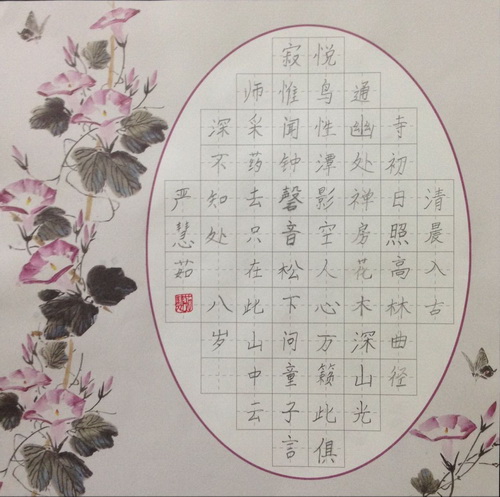 清晨入古
寺初日照高林曲径
通幽处禅房花木深山光
悦鸟性潭影空人心万籁此俱
寂惟闻钟磬音松下问童子言
师采药去只在此山中云
深不知处 八岁
严慧茹